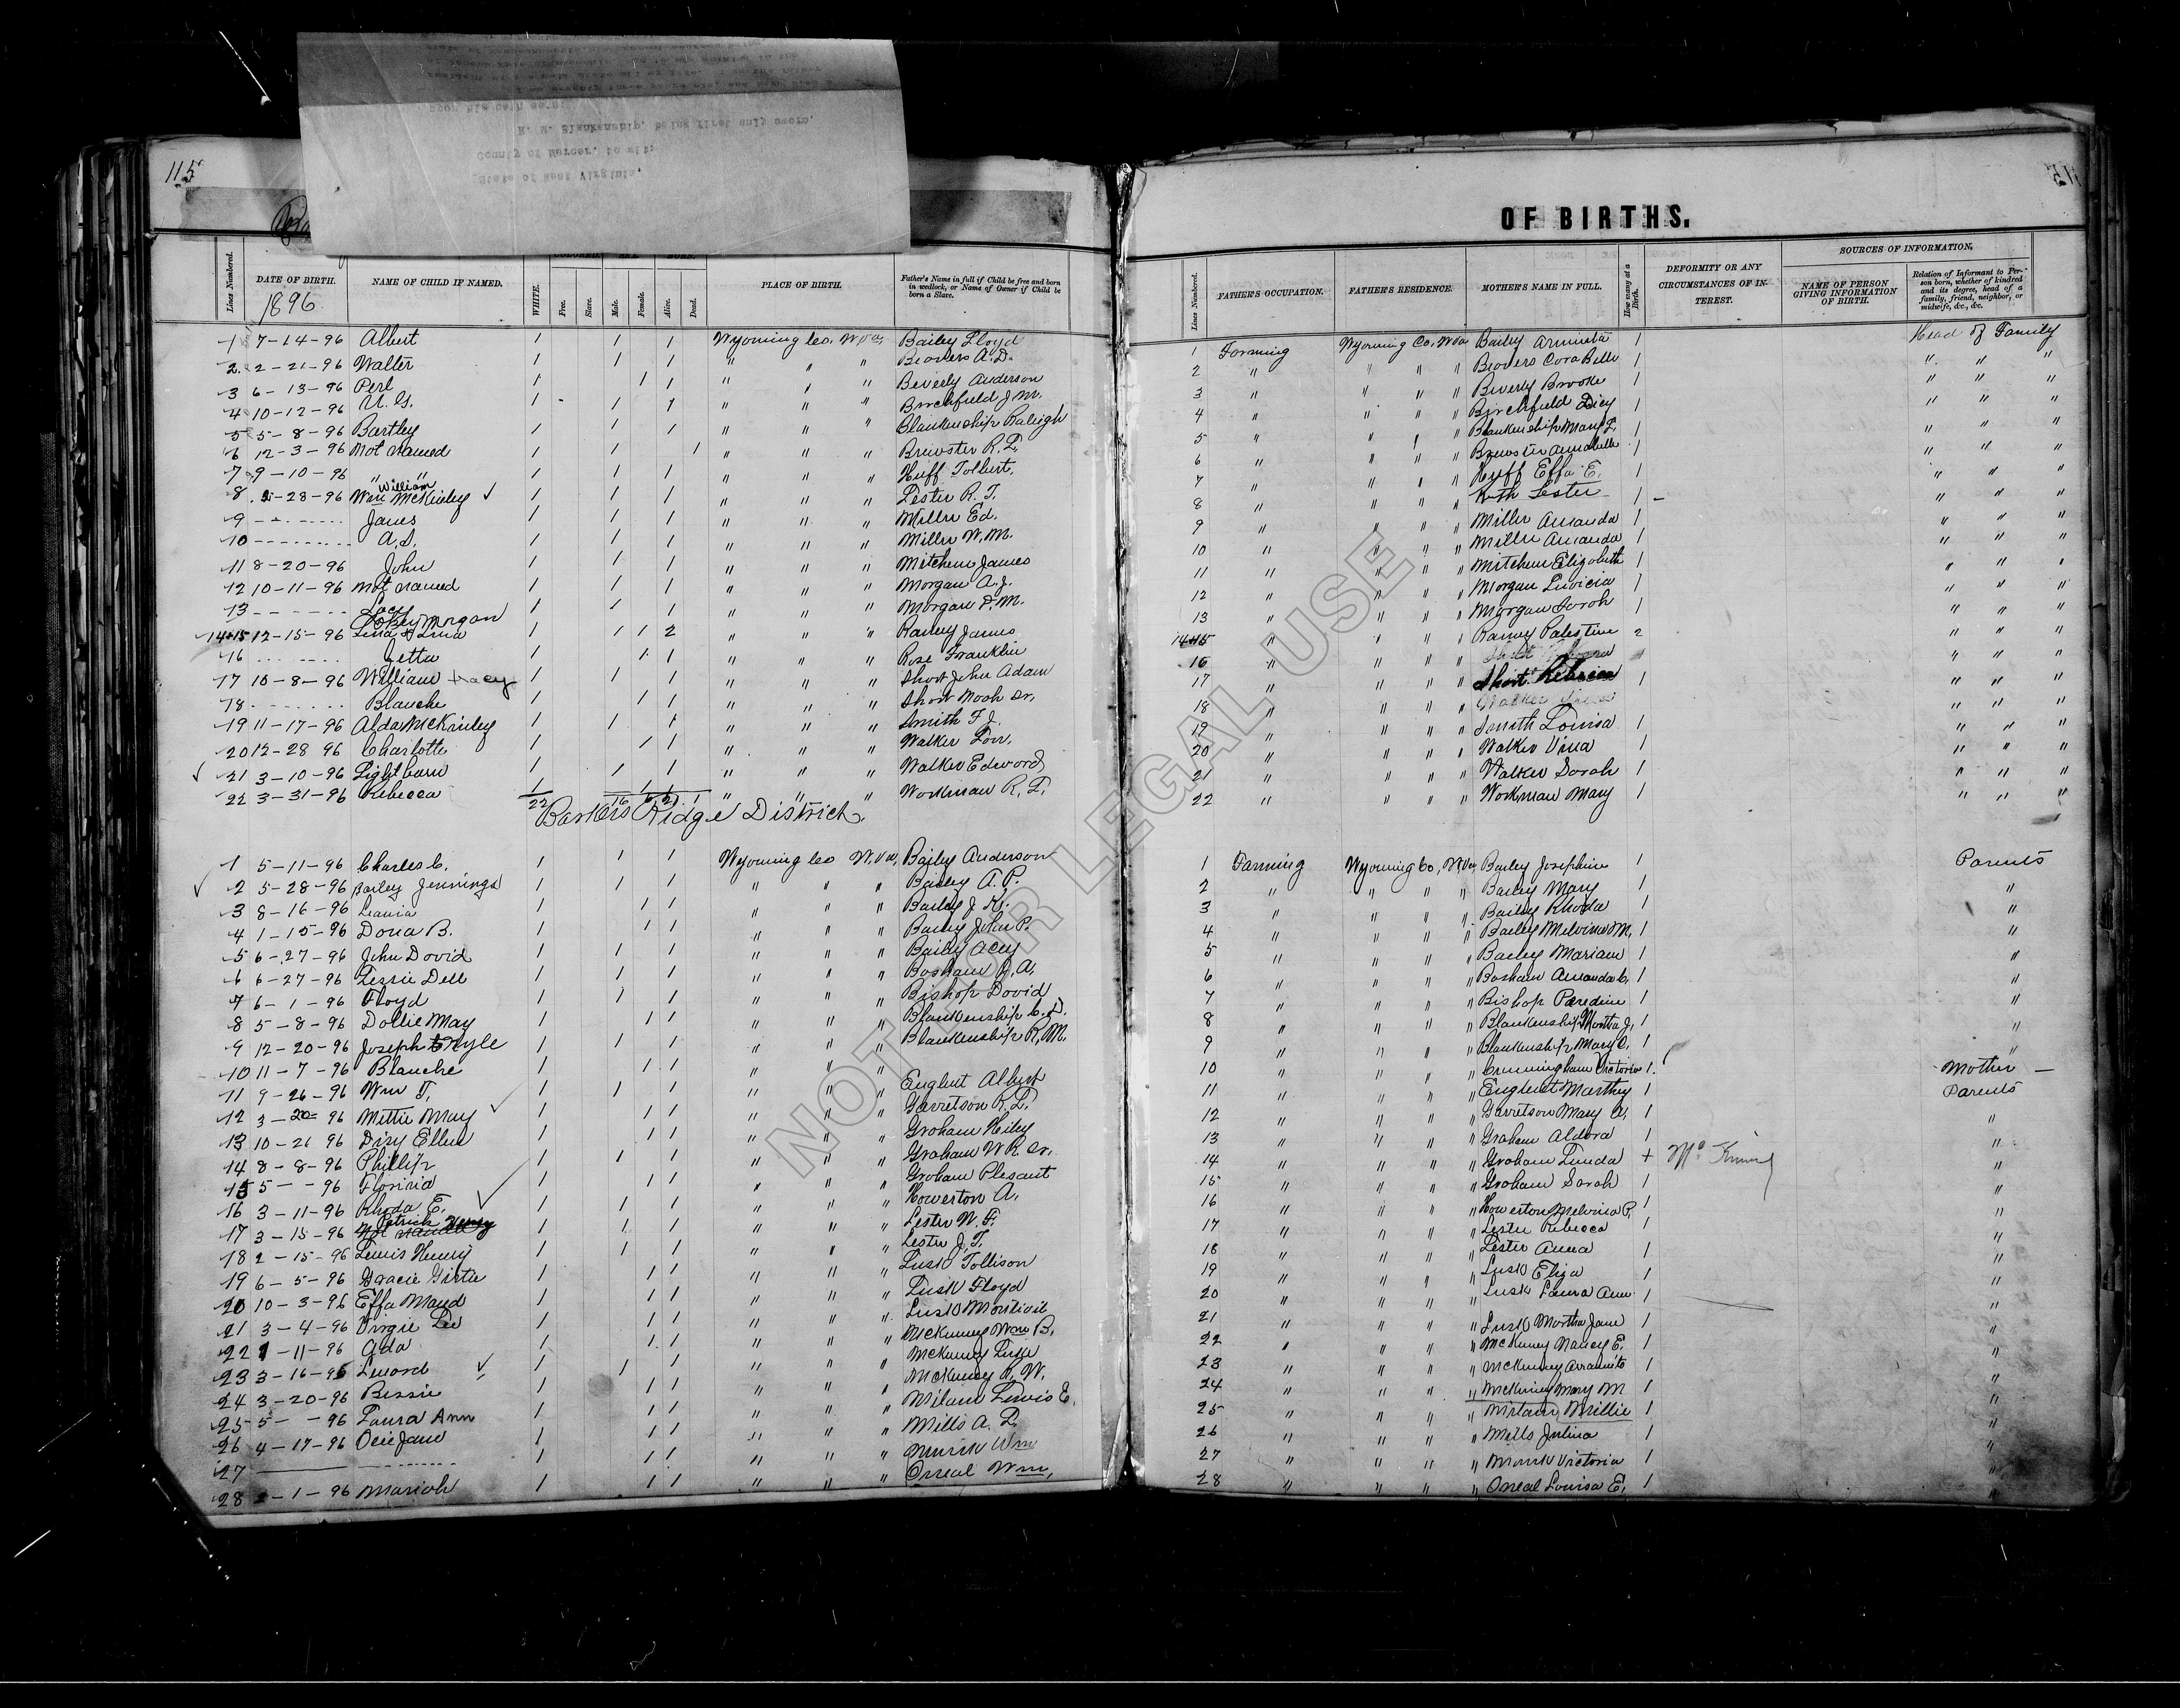 115
State of West Virginia,
County of Mercer, to wit:
R. M. Blankenship, being first duly sworn,
upon his oath says:
OF BIRTHS.
Lines Numbered. DATE OF BIRTH. NAME OF CHILD IF NAMED. WHITE. Free. Slave. Male. Female. Alive. Dead. PLACE OF BIRTH. Father's Name in full if Child be free and born in wedlock, or Name of Owner if Child be born a Slave.
Lines Numbered. FATHER'S OCCUPATION. FATHER'S RESIDENCE. MOTHER'S NAME IN FULL. How many at a Birth. DEFORMITY OR ANY CIRCUMSTANCES OF INTEREST. SOURCES OF INFORMATION. NAME OF PERSON GIVING INFORMATION OF BIRTH. Relation of Informant to Person born, whether of kindred and its degree, head of a family, friend, neighbor, or midwife, &c., &c.
1896
1 7-14-96 Albert 1 1 1 Wyoming Co. W Va, Bailey Lloyd 1 Farming Wyoming Co, W Va Bailey Arminta 1 Head of Family
2 2-21-96 Walter 1 1 1 " " " A.D. 2 " " " " Cora Belle 1 " " "
3 6-13-96 Perl 1 1 1 " " " Beverly Anderson 3 " " " " Beverly Brooke 1 " " "
4 10-12-96 U. G. 1 1 1 " " " Birchfield J M. 4 " " " " Birchfield Dicy 1 " " "
5 5-8-96 Bartley 1 1 1 " " " Blankenship Raleigh 5 " " " " Blankenship Mary L. 1 " " "
6 12-3-96 Not named 1 1 1 " " " Brewster R. L. 6 " " " " Brewster Annabelle 1 " " "
7 9-10-96 " " 1 1 1 " " " Huff Tolbert. 7 " " " " Huff Effa E. 1 " " "
8 -28-96 William McKinley 1 1 1 " " " Lester R. T. 8 " " " " Ruth Lester 1 " " "
9 James 1 1 1 " " " Miller Ed. 9 " " " " Miller Amanda 1 " " "
10 A.D. 1 1 1 " " " Miller W. M. 10 " " " " Miller Amanda 1 " " "
11 8-20-96 John 1 1 1 " " " Mitchem James 11 " " " " Mitchem Elizabeth 1 " " "
12 10-11-96 Not named 1 1 1 " " " Morgan A. J. 12 " " " " Morgan Luvicia 1 " " "
13 Morgan 1 1 1 " " " Morgan D. M. 13 " " " " Morgan Sarah 1 " " "
14+15 12-15-96 Lina 1 1 1 2 " " " Ramey James 14+15 " " " " Ramey Palestine 2 " " "
16 Jetta 1 1 1 " " " Rose Franklin 16 " " " " " " "
17 10-8-96 William 1 1 1 " " " Short John Adam 17 " " " " Short Rebecca 1 " " "
18 Blanche 1 1 1 " " " Short Noah Sr. 18 " " " " Walker " " "
19 11-17-96 Alda McKinley 1 1 1 " " " Smith F. J. 19 " " " " Smith Louisa 1 " " "
20 12-28 96 Charlotte 1 1 1 " " " Walker 20 " " " " Walker Vina 1 " " "
21 3-10-96 Lightburn 1 1 1 " " " Walker Edward 21 " " " " Walker Sarah 1 " " "
22 3-31-96 Rebecca 1 1 1 " " " Workman R. L. 22 " " " " Workman Mary 1 " " "
22 16 6 21 1
Barkers Ridge District.
1 5-11-96 Charles C. 1 1 1 Wyoming Co W. Va, Bailey Anderson 1 Farming Wyoming Co, W Va, Bailey Josephine 1 Parents
2 5-28-96 Bailey Jennings 1 1 1 " " " Bailey A. P. 2 " " " " Bailey Mary 1 "
3 8-16-96 1 1 1 " " " Bailey J. K. 3 " " " " Bailey Rhoda 1
4 1-15-96 Dona B. 1 1 1 " " " Bailey John P. 4 " " " " Bailey Melvina M. 1 "
5 6-27-96 John David 1 1 1 " " " Bailey Acey 5 " " " " Bailey Mariam 1 "
6 6-27-96 Dell 1 1 1 " " " Basham R. A. 6 " " " " Basham Amanda C. 1
7 6-1-96 Floyd 1 1 1 " " " Bishop David 7 " " " " Bishop 1 "
8 5-8-96 Dollie May 1 1 1 " " " Blankenship C. D. 8 " " " " Blankenship Martha J. 1 "
9 12-20-96 Joseph Kyle 1 1 1 " " " Blankenship R. M. 9 " " " " Blankenship Mary C. 1 "
10 11-7-96 Blanche 1 1 1 " " " 10 " " " " Cunningham Victoria 1 Mother
11 9-26-96 Wm T. 1 1 1 " " " Englert Albert 11 " " " " Englert Marthey 1 Parents
12 3-20-96 Mittie May 1 1 1 " " " Garretson R. L. 12 " " " " Garretson Mary A. 1 "
13 10-21 96 Disy Ellen 1 1 1 " " " Graham Hiley 13 " " " " Graham Aldora 1 "
14 8-8-96 Phillip 1 1 1 " " " Graham W R. Sr. 14 " " " " Graham Linda "
15 5- -96 1 1 1 " " " Graham Plesant 15 " " " " Graham Sarah 1 "
16 3-11-96 Rhoda E. 1 1 1 " " " Howerton A. 16 " " " " Howerton Melvina P. 1
17 3-15-96 Patrick Henry 1 1 1 " " " Lester W. F. 17 " " " " Lester Rebecca 1 "
18 2-15-96 Lewis Henry 1 1 1 " " " Lester J. T. 18 " " " " Lester Anna 1 "
19 6-5-96 Gracie Girtie 1 1 1 " " " Lusk Tollison 19 " " " " Lusk Eliza 1 "
20 10-3-96 Effa Maud 1 1 1 " " " Lusk Floyd 20 " " " " Lusk Laura Ann 1 "
21 3-4-96 Virgie Lee 1 1 1 " " " Lusk 21 " " " " Lusk Martha Jane 1 "
22 1-11-96 Ada 1 1 1 " " " McKinney Wm B. 22 " " " " McKinney Nancy E. 1 "
23 3-16-96 Lenord 1 1 1 " " " McKinney 23 " " " " McKinney 1 "
24 3-20-96 Bessie 1 1 1 " " " McKinney R. W. 24 " " " " McKinney Mary M 1 "
25 5- -96 Laura Ann 1 1 1 " " " Milam Lewis E. 25 " " " " Millie 1 "
26 4-17-96 Ocie Jane 1 1 1 " " " Mills A. L. 26 " " " " Mills Julina 1 "
27 1 1 1 " " " Wm 27 " " " " Victoria 1 "
28 2-1-96 Mariah 1 1 1 " " " Orreal Wm, 28 " " " " Oneal Louisa E. 1 "
NOT FOR LEGAL USE